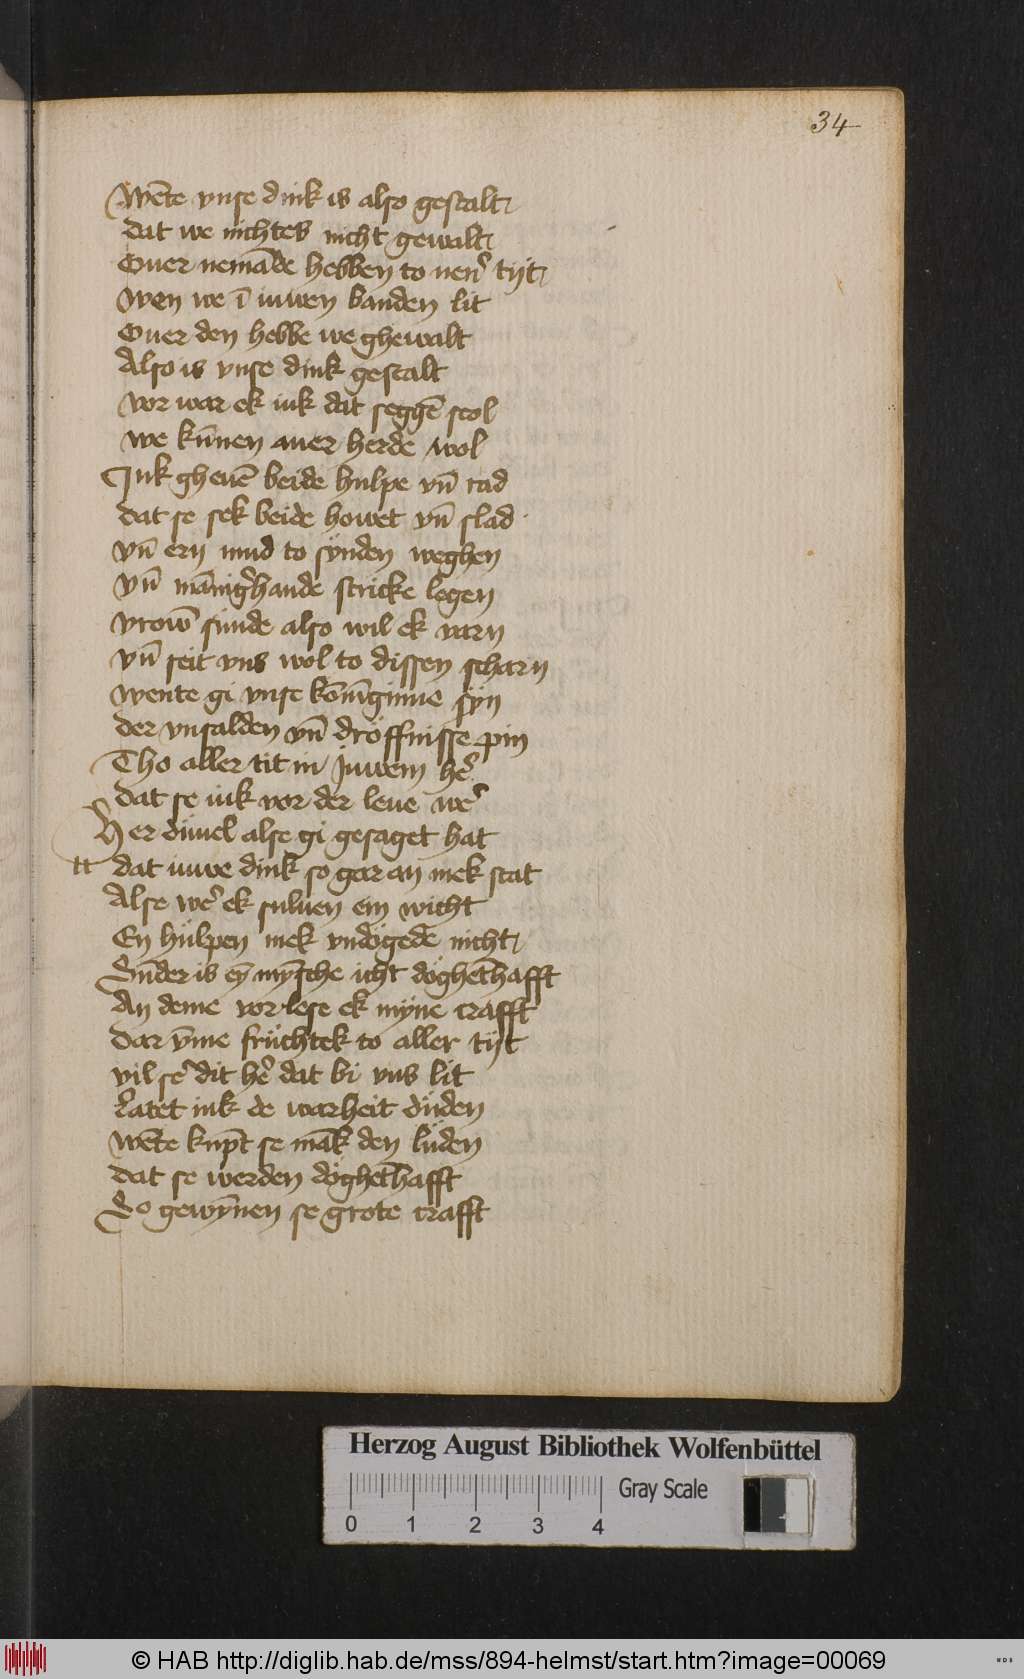 34
Wēte vnse dink is also gestalt
dat we nichtes nicht gewalt
Ouer nemāde hebben to nenˀ tijt
Wen we ī iuwen banden lit
Ouer den hebbe we ghewalt
Also is vnse dink gestalt
vor war ek iuk dat seggē scol
we kūnen auer herde wol
Juk gheuē beide hulpe vn̄ rad
dat se sek beide howet vn̄ slad
vn̄ ern mud to synden weghen
vn̄ mānigˀhande stricke legen
vrow̄ sunde also wil ek varn
vn̄ seit vns wol to dissen scharn
wente gi vnse kōniginne syn
der vnsalden vn̄ dröffnisse pin
Tho aller tit in juwem hˀe
dat se iuk vor der leue wˀe
Her düuel alse gi gesaget hat
dat iuwe dink so gar an mek stat
Alse wˀe ek suluen em wicht
En hülpen mek vndögede nicht
Sūder is eȳ mȳsche icht döghethafft
An deme vor lese ek myne crafft
Dar v̄me früchtek to aller tijt
vil sˀe dit hˀe dat bi vns lit
Latet iuk de warheit düden
Wēte kūpt se māk den lüden
dat se werden döghethafft
So gewȳnen se grote crafft
Herzog August Bibliothek Wolfenbüttel
Gray Scale
0 1 2 3 4
© HAB http://diglib.hab.de/mss/894-helmst/start.htm?image=00069